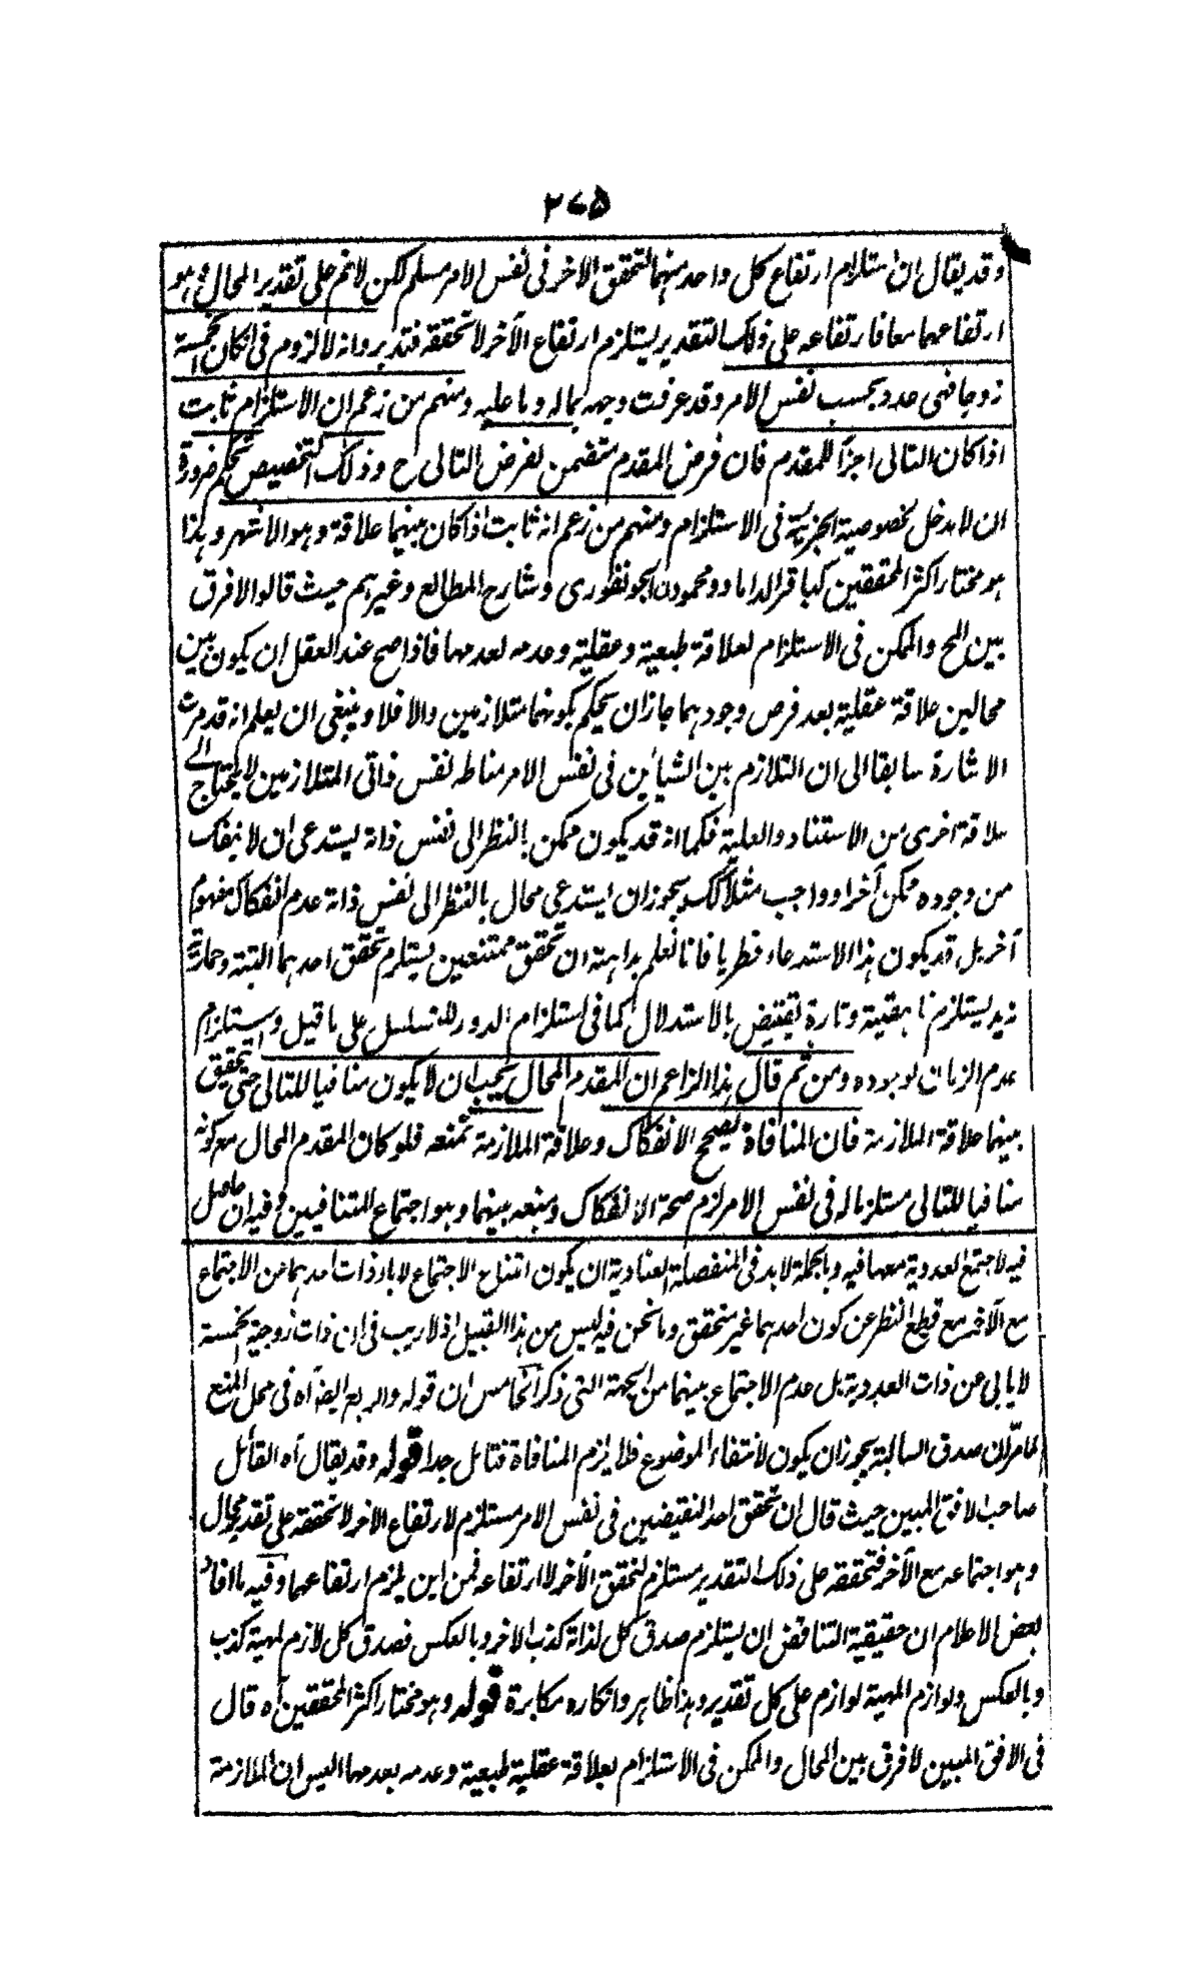 ٢٧٥
وقد يقال ان استلزام ارتفاع كل واحد منهما لتحقق الآخر فى نفس الامر مسلم لكن لانم على تقدير المحال وهو
ارتفاعهما معا فارتفاعه على ذلك التقدير يستلزم ارتفاع الآخر لا تحققه فتدبر وانه لا لزوم فى ان كان الخمسة
زوجا فهى عدد بحسب نفس الامر وقد عرفت وجهه بماله وما عليه ومنهم من زعم ان الاستلزام ثابت
اذا كان التالى جزأ للمقدم فان فرض المقدم متضمن لفرض التالى ح وذلك التخصيص تحكم ضرورة
ان لا مدخل لخصوصية الجزئية فى الاستلزام ومنهم من زعم انه ثابت اذا كان بينهما علاقة وهو الاشهر وهذا
هو مختار اكثر المحققين كباقر الداماد ومحمود الجونفورى وشارح المطالع وغيرهم حيث قالوا لا فرق
بين المح والممكن فى الاستلزام لعلاقة طبعية وعقلية وعدمه لعدمها فاذا صح عند العقل ان يكون بين
محالين علاقة عقلية بعد فرض وجودهما جاز ان يحكم بكونهما متلازمين والا فلا وينبغى ان يعلم انه قد مرت
الاشارة سابقا الى ان التلازم بين الشيأين فى نفس الامر مناطه نفس ذاتى المتلازمين لا يحتاج الى
علاقة اخرى من الاستناد والعلية فكما انه قد يكون ممكن بالنظر الى نفس ذاته يستدعى ان لا ينفك
من وجوده ممكن آخر او واجب مثلا كك يجوز ان يستدعى محال بالنظر الى نفس ذاته عدم انفكاك مفهوم
آخر بل قد يكون هذا الاستدعاء فطريا فانا نعلم بداهة ان تحقق ممتنعين يستلزم تحقق احدهما البتة وحمارية
زيد يستلزم ناهقيته وتارة يقتنص بالاستدلال كما فى استلزام الدور للتسلسل على ما قيل ويستلزم
عدم الزمان لوجوده ومن ثم قال هذا الزاعم ان المقدم المحال يجب ان لا يكون منافيا للتالى حتى يتحقق
بينهما علاقة الملازمة فان المنافاة تصحح الانفكاك وعلاقة الملازمة تمنعه فلو كان المقدم المحال مع كونه
منافيا للتالى مستلزما له فى نفس الامر لزم صحة الانفكاك ومنعه بينهما وهو اجتماع المتنافيين وفيه ان حاصل
فيه لاجتمع العددية معها فيه وبالجملة لابد فى المنفصلة العنادية ان يكون امتناع الاجتماع لاباء ذات احدهما عن الاجتماع
مع الآخر مع قطع النظر عن كون احدهما غير متحقق وما نحن فيه ليس من هذا القبيل اذ لا ريب فى ان ذات زوجية الخمسة
لا يابى عن ذات العددية بل عدم الاجتماع بينهما من الجهة التى ذكر الخامس ان قوله والربع ايضا آه فى محل المنع
لما مر ان صدق السالبة يجوز ان يكون لانتفاء الموضوع فلا يلزم المنافاة فتامل جدا قوله وقد يقال آه القائل
صاحب الافق المبين حيث قال ان تحقق احد النقيضين فى نفس الامر مستلزم لارتفاع الآخر لا تحققه على تقدير محال
وهو اجتماعه مع الآخر فتحققه على ذلك التقدير مستلزم لتحقق الآخر لا ارتفاعه فمن اين يلزم ارتفاعهما وفيه ما افاد
بعض الاعلام ان حقيقية التناقض ان يستلزم صدق كل لذاته كذب الآخر وبالعكس فصدق كل لازم لمهية كذب
وبالعكس ولوازم المهية لوازم على كل تقدير وهذا ظاهر وانكاره مكابرة قوله وهو مختار اكثر المحققين آه قال
فى الافق المبين لا فرق بين المحال والممكن فى الاستلزام بعلاقة عقلية طبعية وعدمه بعدمها اليس ان الملازمة